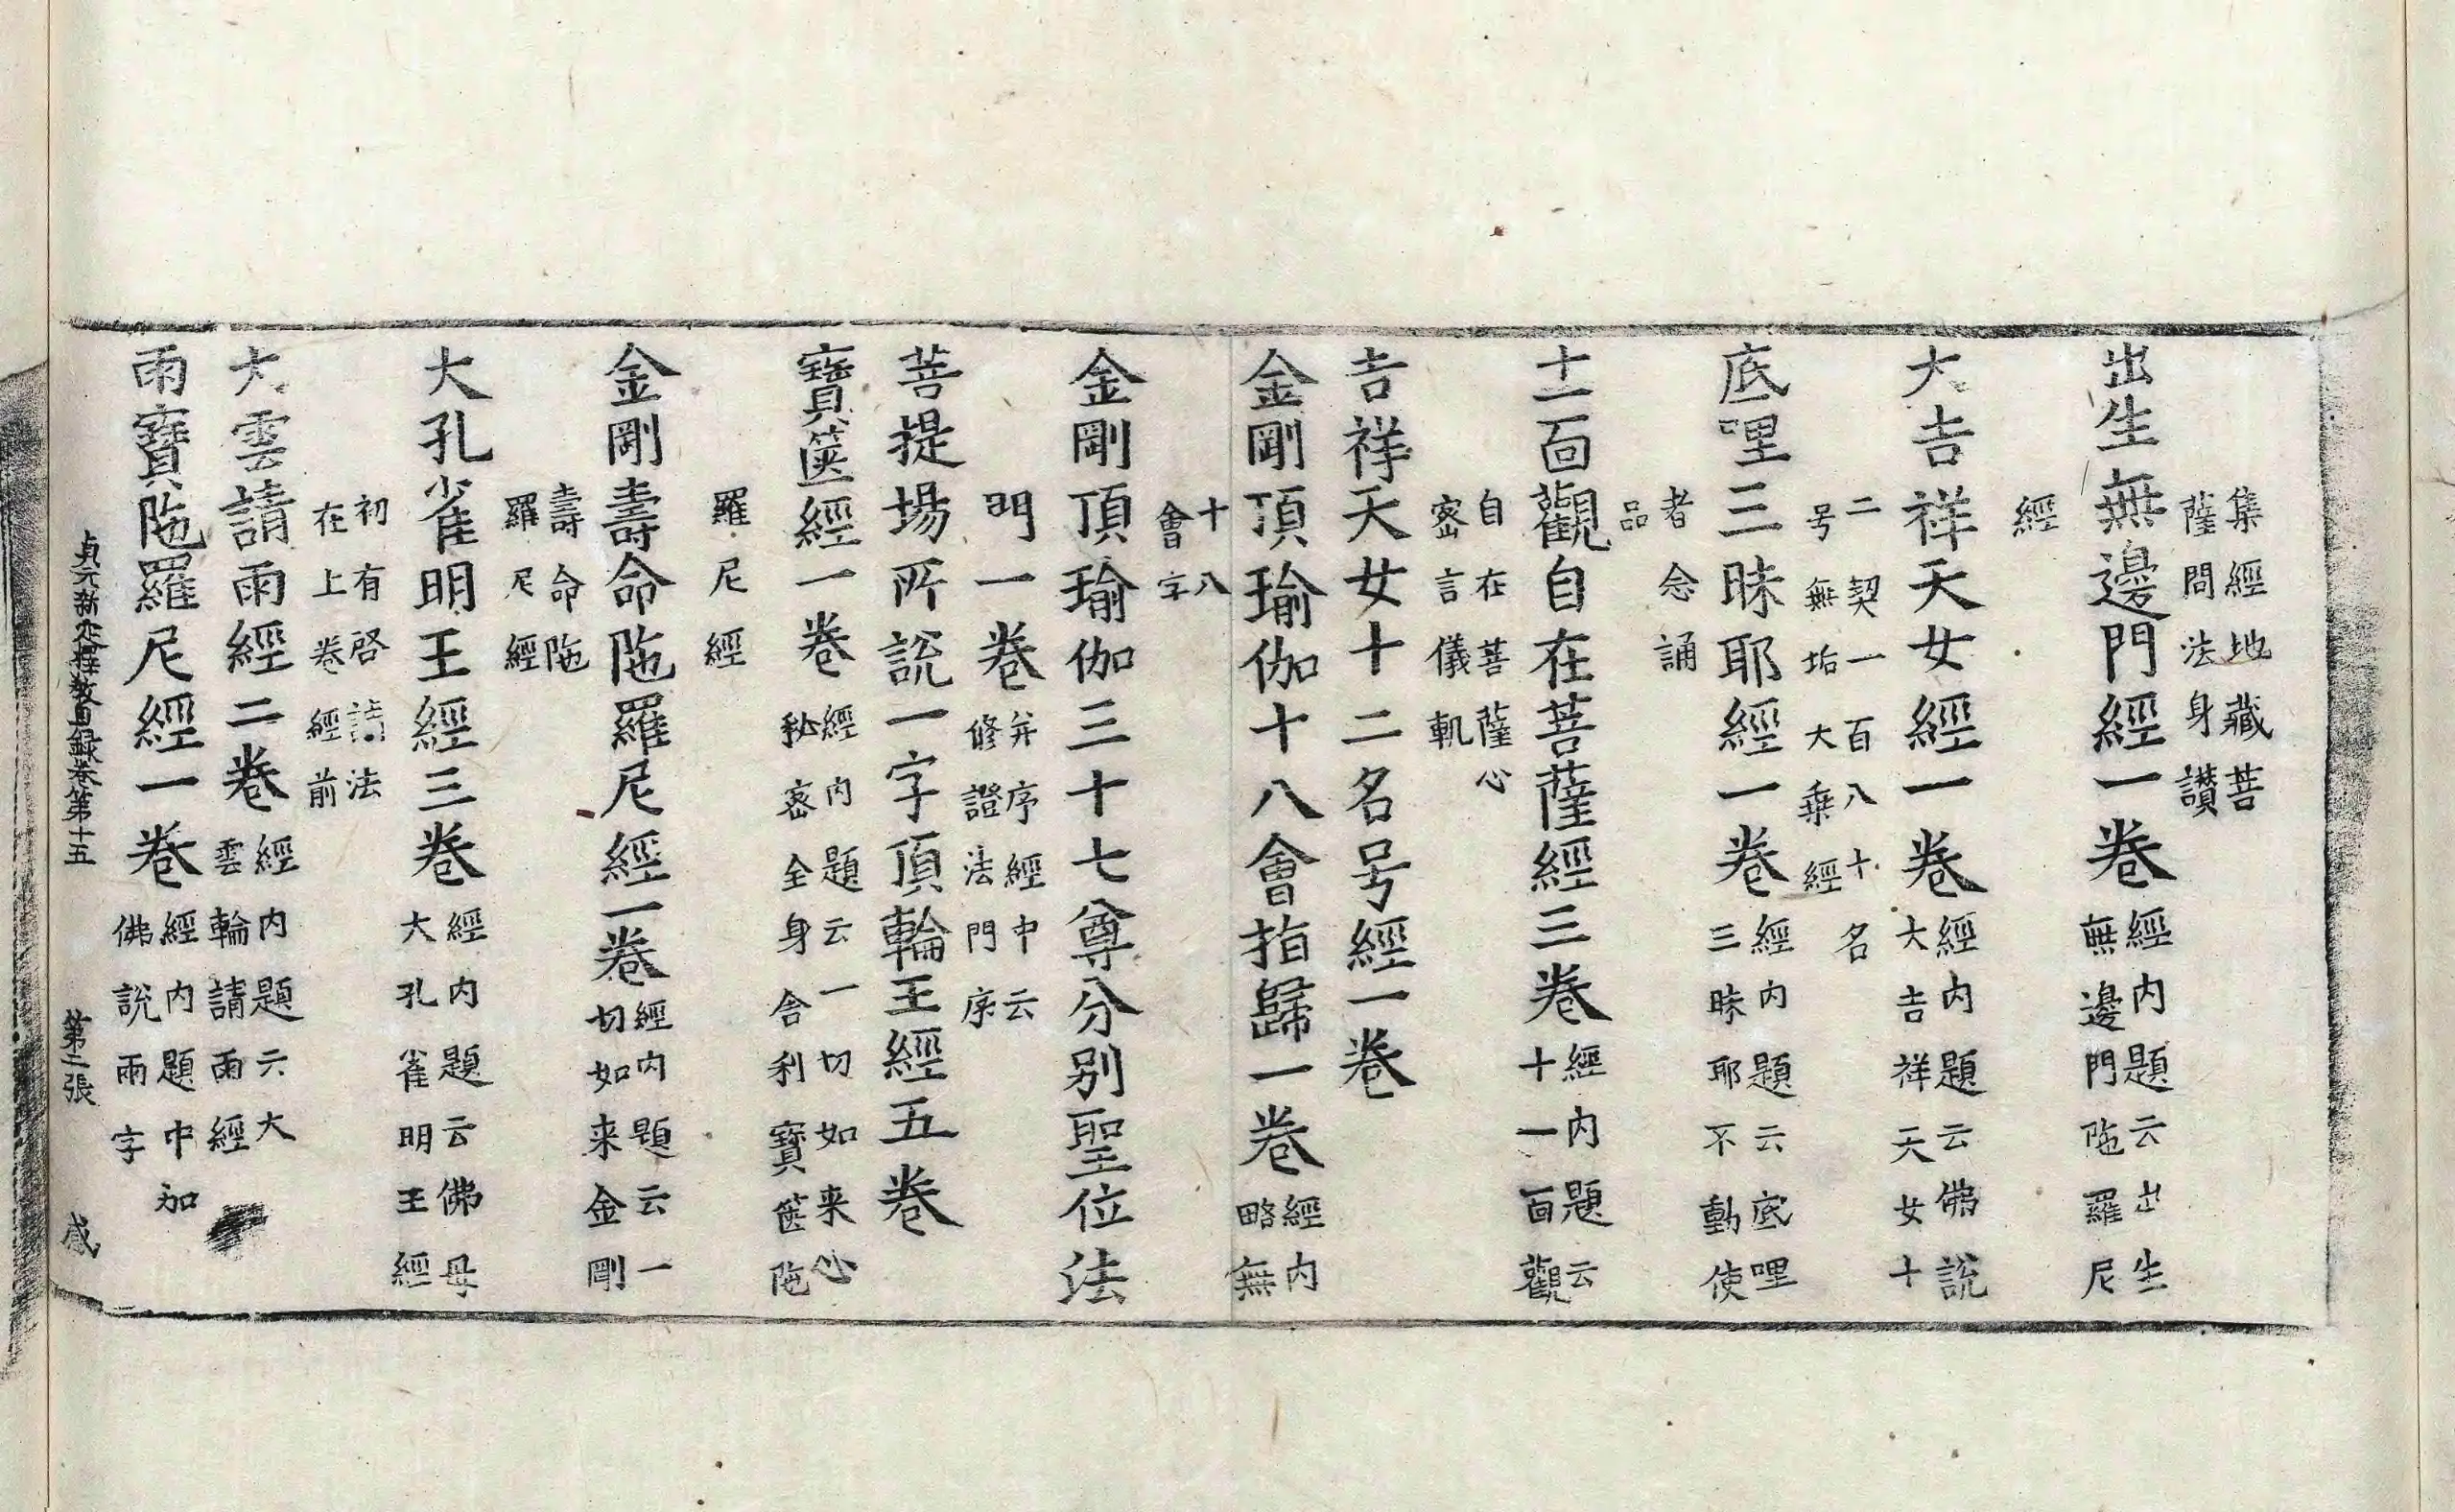 集經地藏菩
薩問法身讃
出生無邊門經一卷
經內題云出生
無邊門陁羅尼
經
大吉祥天女經一卷
經內題云佛說
大吉祥天女十
二契一百八十名
号無垢大乗經
底哩三昧耶經一卷
經內題云底哩
三昧耶不動使
者念誦
品
十一面觀自在菩薩經三卷
經內題云
十一面觀
自在菩薩心
密言儀軌
吉祥天女十二名号經一卷
金剛頂瑜伽十八會指歸一卷
經內
略無
十八
會字
金剛頂瑜伽三十七尊分別聖位法
門一卷
并序經中云
修證法門序
菩提場所說一字頂輪王經五卷
寶篋經一卷
經內題云一切如来心
秘密全身舍利寶篋陁
羅尼經
金剛壽命陁羅尼經一卷
經內題云一
切如来金剛
壽命陁
羅尼經
大孔雀明王經三卷
經內題云佛母
大孔雀明王經
初有啓請法
在上卷經前
大雲請雨經二卷
經內題云大
雲輪請雨經
雨寶陁羅尼經一卷
經內題中加
佛說雨字
貞元新定釋教目録卷第十五 第二張 感